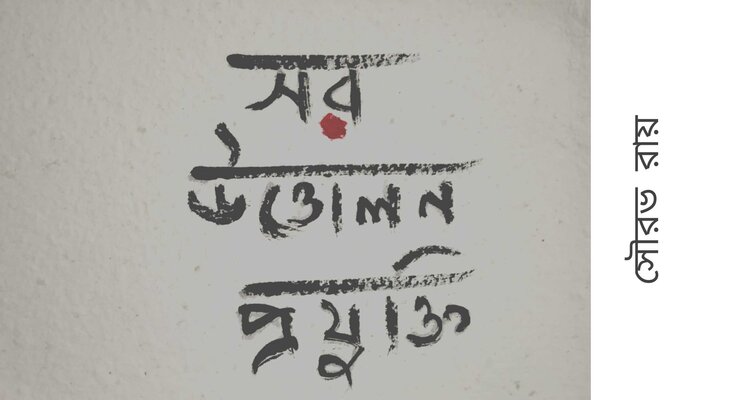 সর
উত্তোলন
প্রযুক্তি
সৌরভ রায়